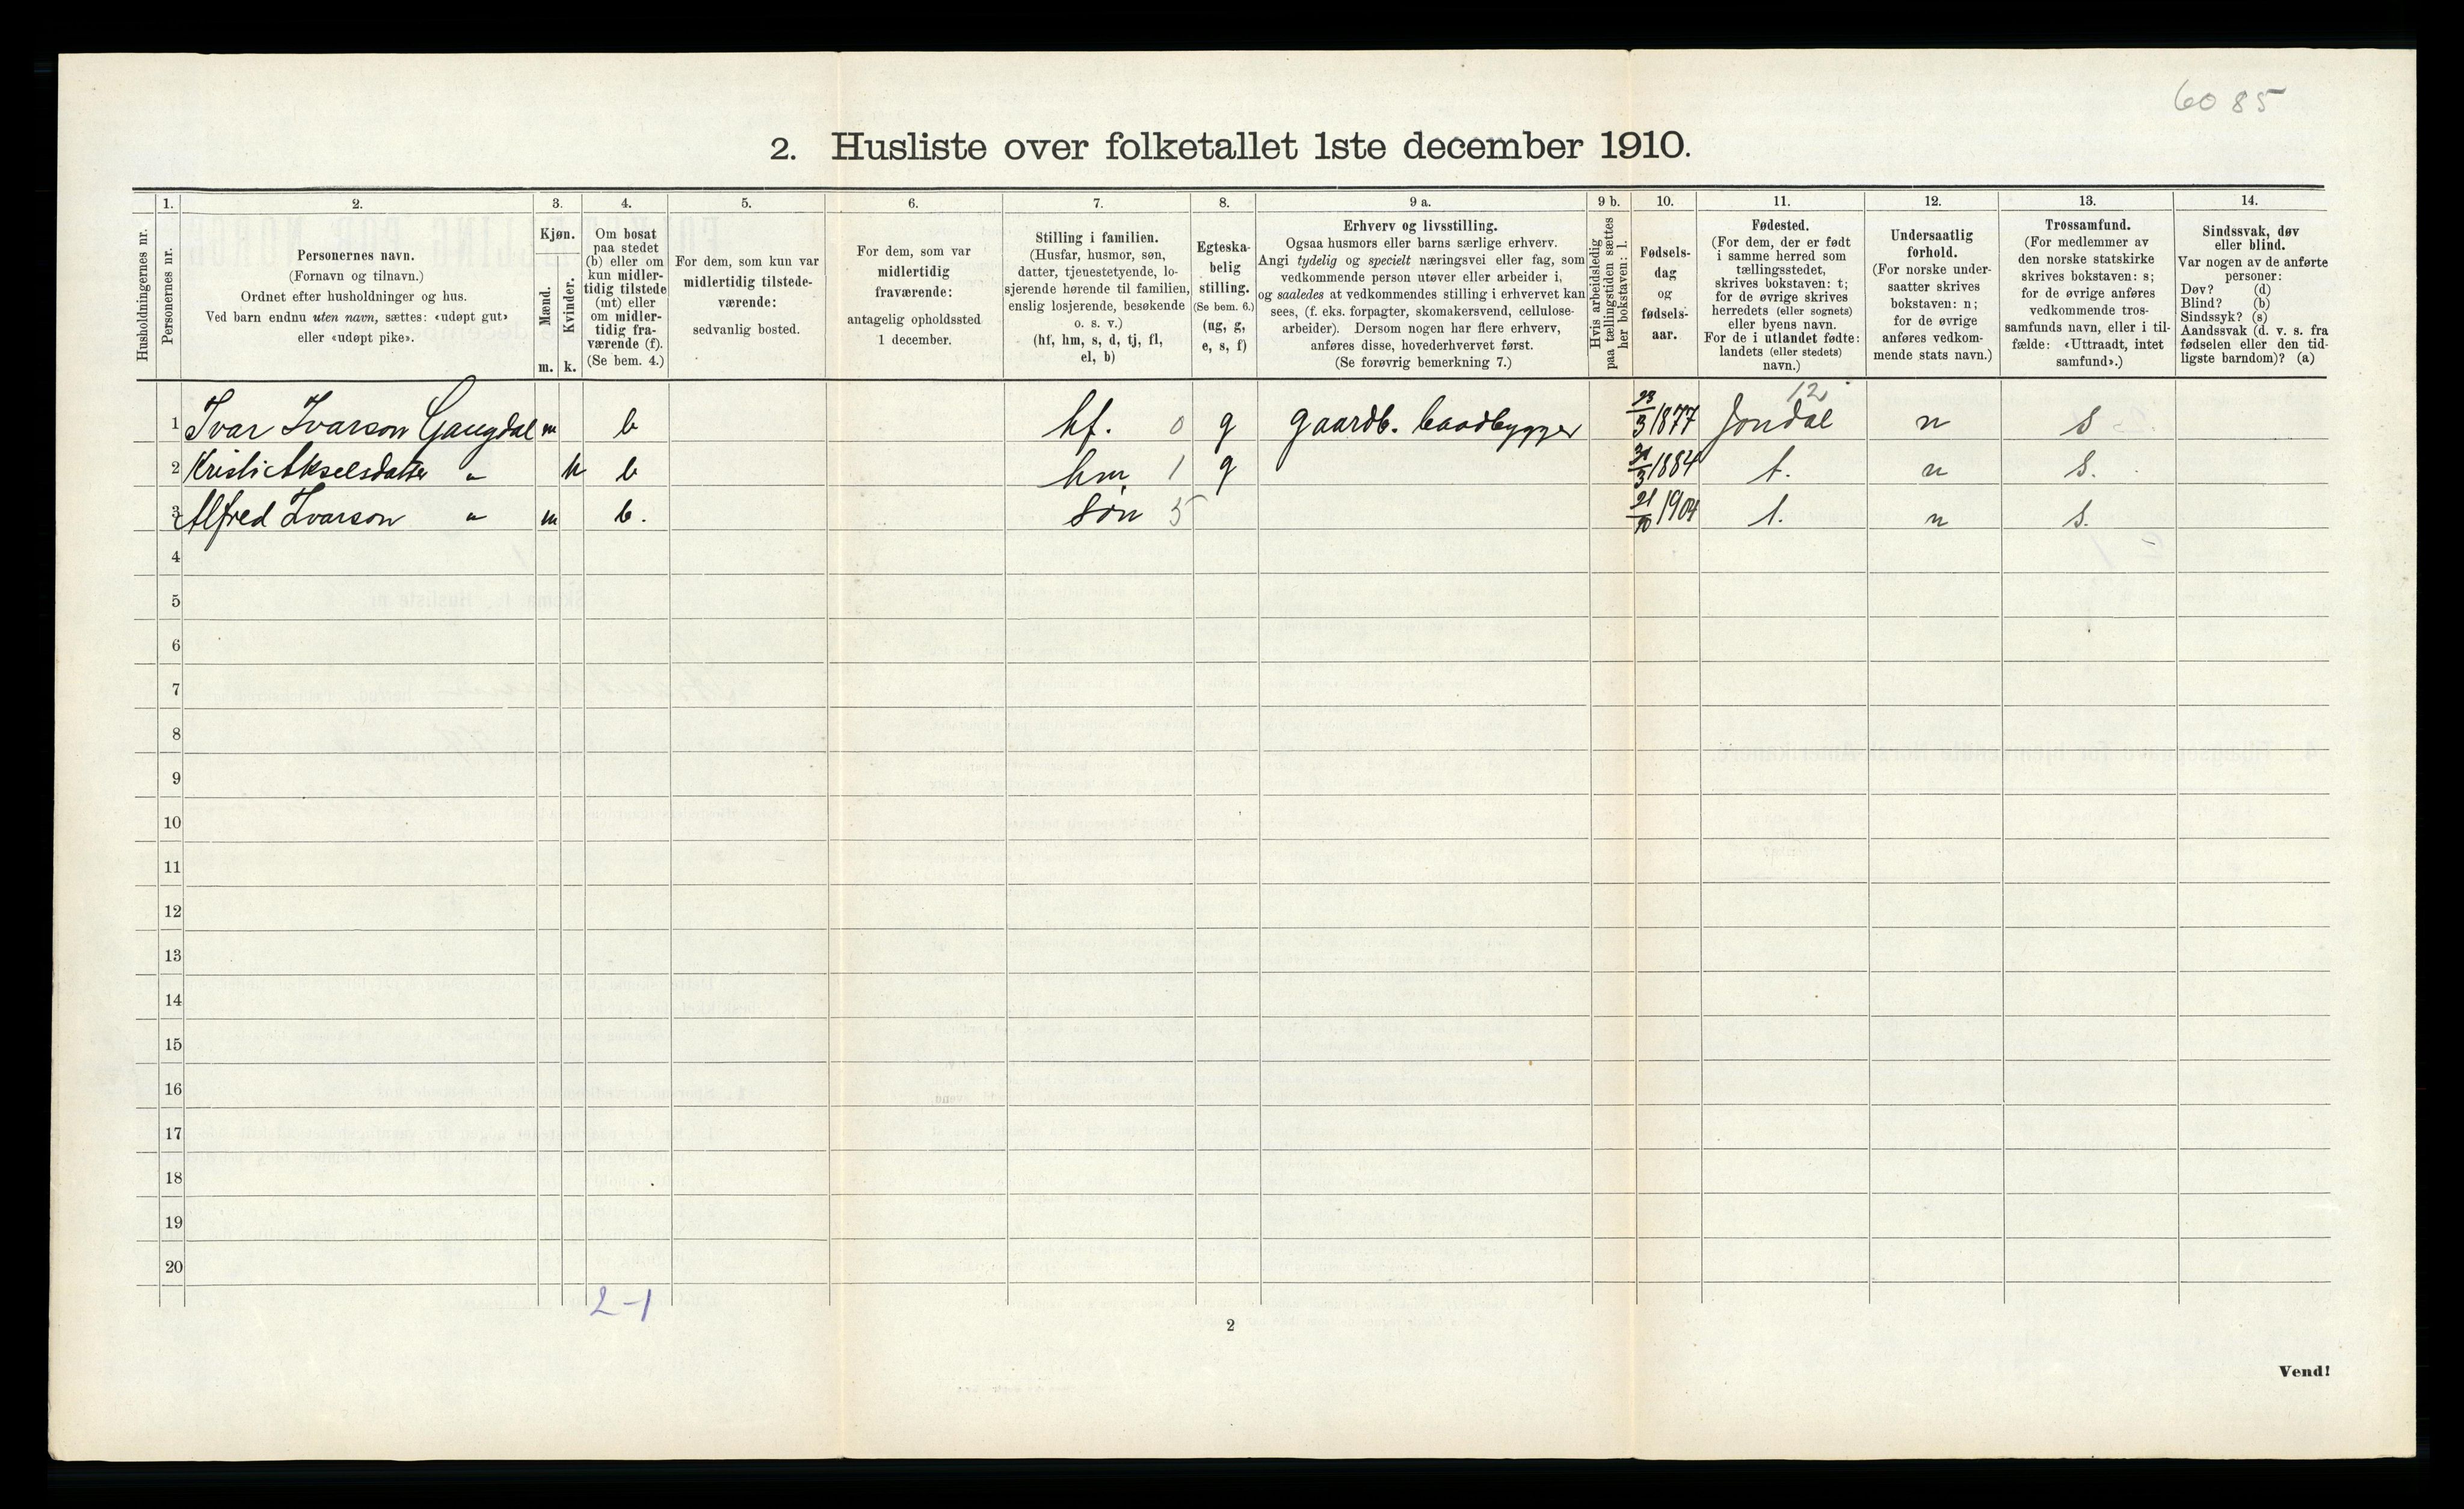 6085
2. Husliste over folketallet 1ste december 1910.
Husholdningernes nr.
1.
Personernes nr.
2.
Personernes navn.
(Fornavn og tilnavn.)
Ordnet efter husholdninger og hus.
Ved barn endnu uten navn, sættes: «udøpt gut»
eller «udøpt pike».
3.
Kjøn.
Mænd.
Kvinder.
m. k.
4.
Om bosat
paa stedet
(b) eller om
kun midler-
tidig tilstede
(mt) eller
om midler-
tidig fra-
værende (f).
(Se bem. 4.)
5.
For dem, som kun var
midlertidig tilstede-
værende:
sedvanlig bosted.
6.
For dem, som var
midlertidig
fraværende:
antagelig opholdssted
1 december.
7.
Stilling i familien.
(Husfar, husmor, søn,
datter, tjenestetyende, lo-
sjerende hørende til familien,
enslig losjerende, besøkende
o. s. v.)
(hf, hm, s, d, tj, fl,
el, b)
8.
Egteska-
belig
stilling.
(Se bem. 6.)
(ug, g,
e, s, f)
9 a.
Erhverv og livsstilling.
Ogsaa husmors eller barns særlige erhverv.
Angi tydelig og specielt næringsvei eller fag, som
vedkommende person utøver eller arbeider i,
og saaledes at vedkommendes stilling i erhvervet kan
sees, (f. eks. forpagter, skomakersvend, cellulose-
arbeider). Dersom nogen har flere erhverv,
anføres disse, hovederhvervet først.
(Se forøvrig bemerkning 7.)
9 b.
Hvis arbeidsledig
paa tællingstiden sættes
her bokstaven: l.
10.
Fødsels-
dag
og
fødsels-
aar.
11.
Fødested.
(For dem, der er født
i samme herred som
tællingsstedet,
skrives bokstaven: t;
for de øvrige skrives
herredets (eller sognets)
eller byens navn.
For de i utlandet fødte:
landets (eller stedets)
navn.)
12.
Undersaatlig
forhold.
(For norske under-
saatter skrives
bokstaven: n;
for de øvrige
anføres vedkom-
mende stats navn.)
13.
Trossamfund.
(For medlemmer av
den norske statskirke
skrives bokstaven: s;
for de øvrige anføres
vedkommende tros-
samfunds navn, eller i til-
fælde: «Uttraadt, intet
samfund».)
14.
Sindssvak, døv
eller blind.
Var nogen av de anførte
personer:
Døv? (d)
Blind? (b)
Sindssyk? (s)
Aandssvak (d. v. s. fra
fødselen eller den tid-
ligste barndom)? (a)
12
1 Ivar Ivarson Gaugdal m b hf. 0 g gaardb. baadbygger 23/3 1877 Jondal n s
2 Kristi Akselsdatter " k b hm. 1 g 31/3 1884 t. n s.
3 Alfred Ivarson " m b. søn 5 21/10 1904 t. n s.
4
5
6
7
8
9
10
11
12
13
14
15
16
17
18
19
20
2-1
2
Vend!